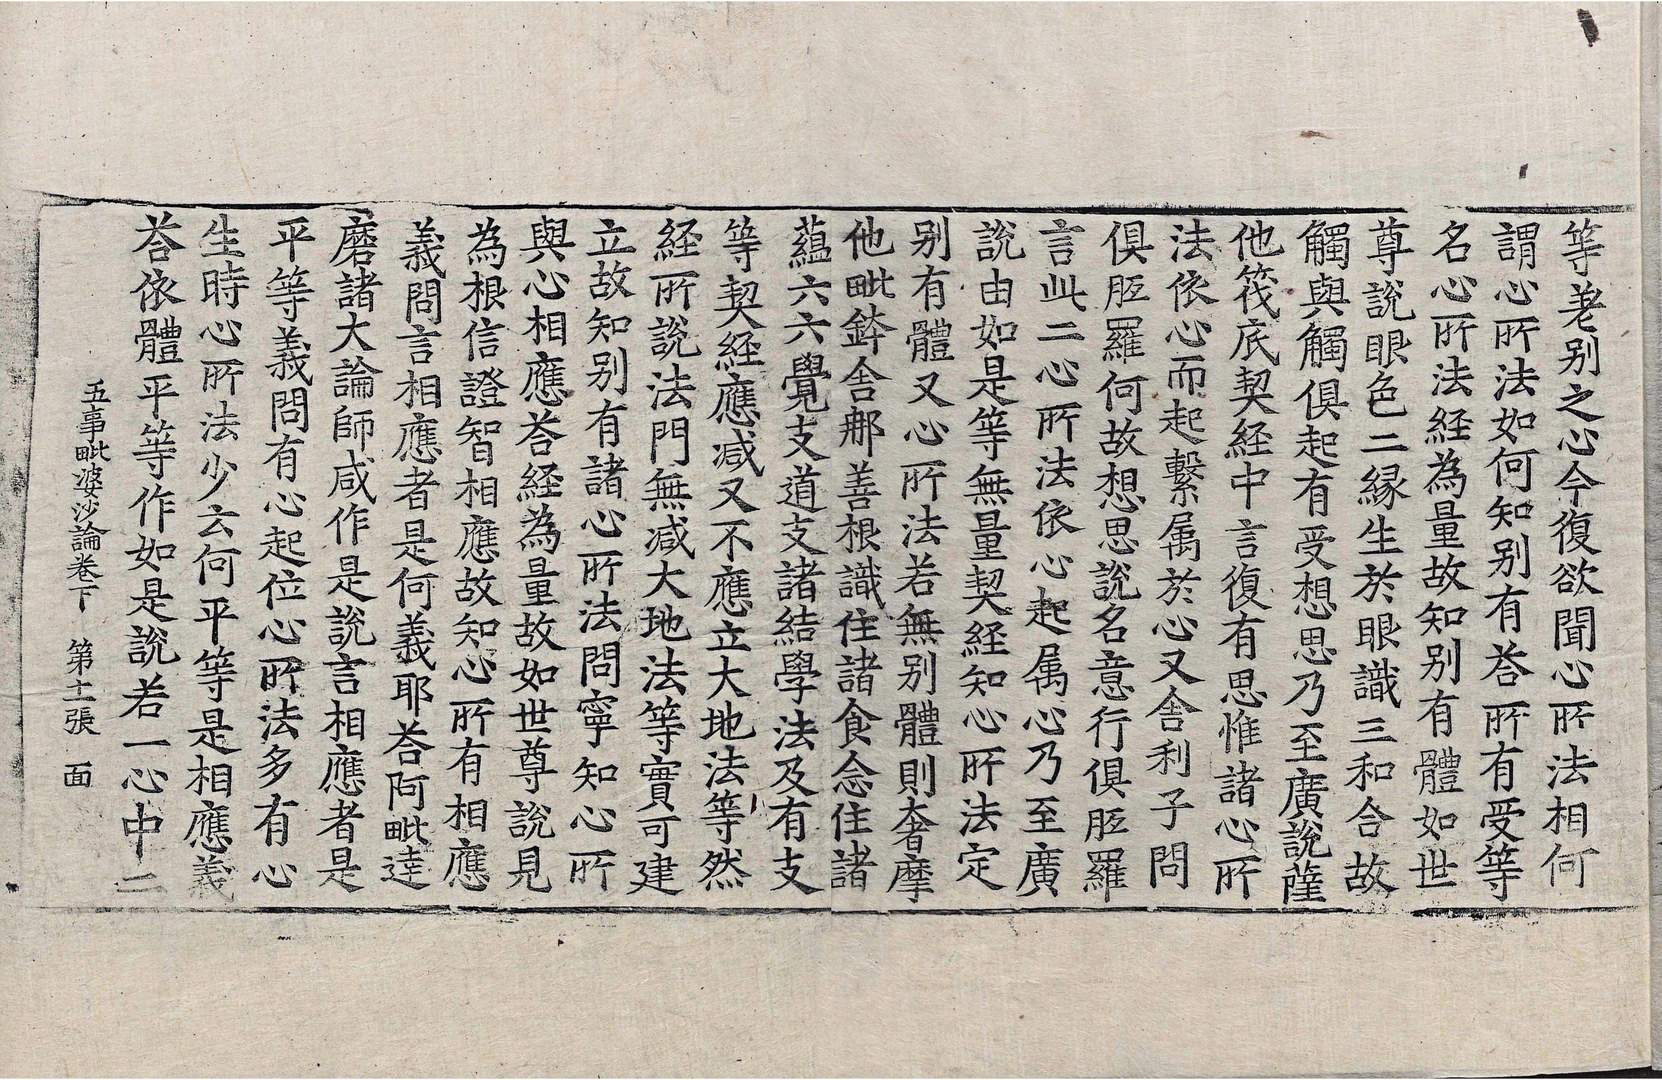 等差别之心今復欲聞心所法相何
謂心所法如何知别有荅所有受等
名心所法經為量故知别有體如世
尊說眼色二縁生於眼識三和合故
觸與觸俱起有受想思乃至廣說薩
他筏底契經中言復有思惟諸心所
法依心而起繫属於心又舍利子問
俱胝羅何故想思說名意行俱胝羅
言此二心所法依心起属心乃至廣
說由如是等無量契經知心所法定
别有體又心所法若無别體則奢摩
他毗鉢舍那善根識住諸食念住諸
蘊六六覺支道支諸結學法及有支
等契經應減又不應立大地法等然
經所說法門無減大地法等實可建
立故知别有諸心所法問寧知心所
與心相應荅經為量故如世尊說見
為根信證智相應故知心所有相應
義問言相應者是何義耶荅阿毗達
磨諸大論師咸作是說言相應者是
平等義問有心起位心所法多有心
生時心所法少云何平等是相應義
荅依體平等作如是說若一心中二
五事毗婆沙論卷下 第十一張 面